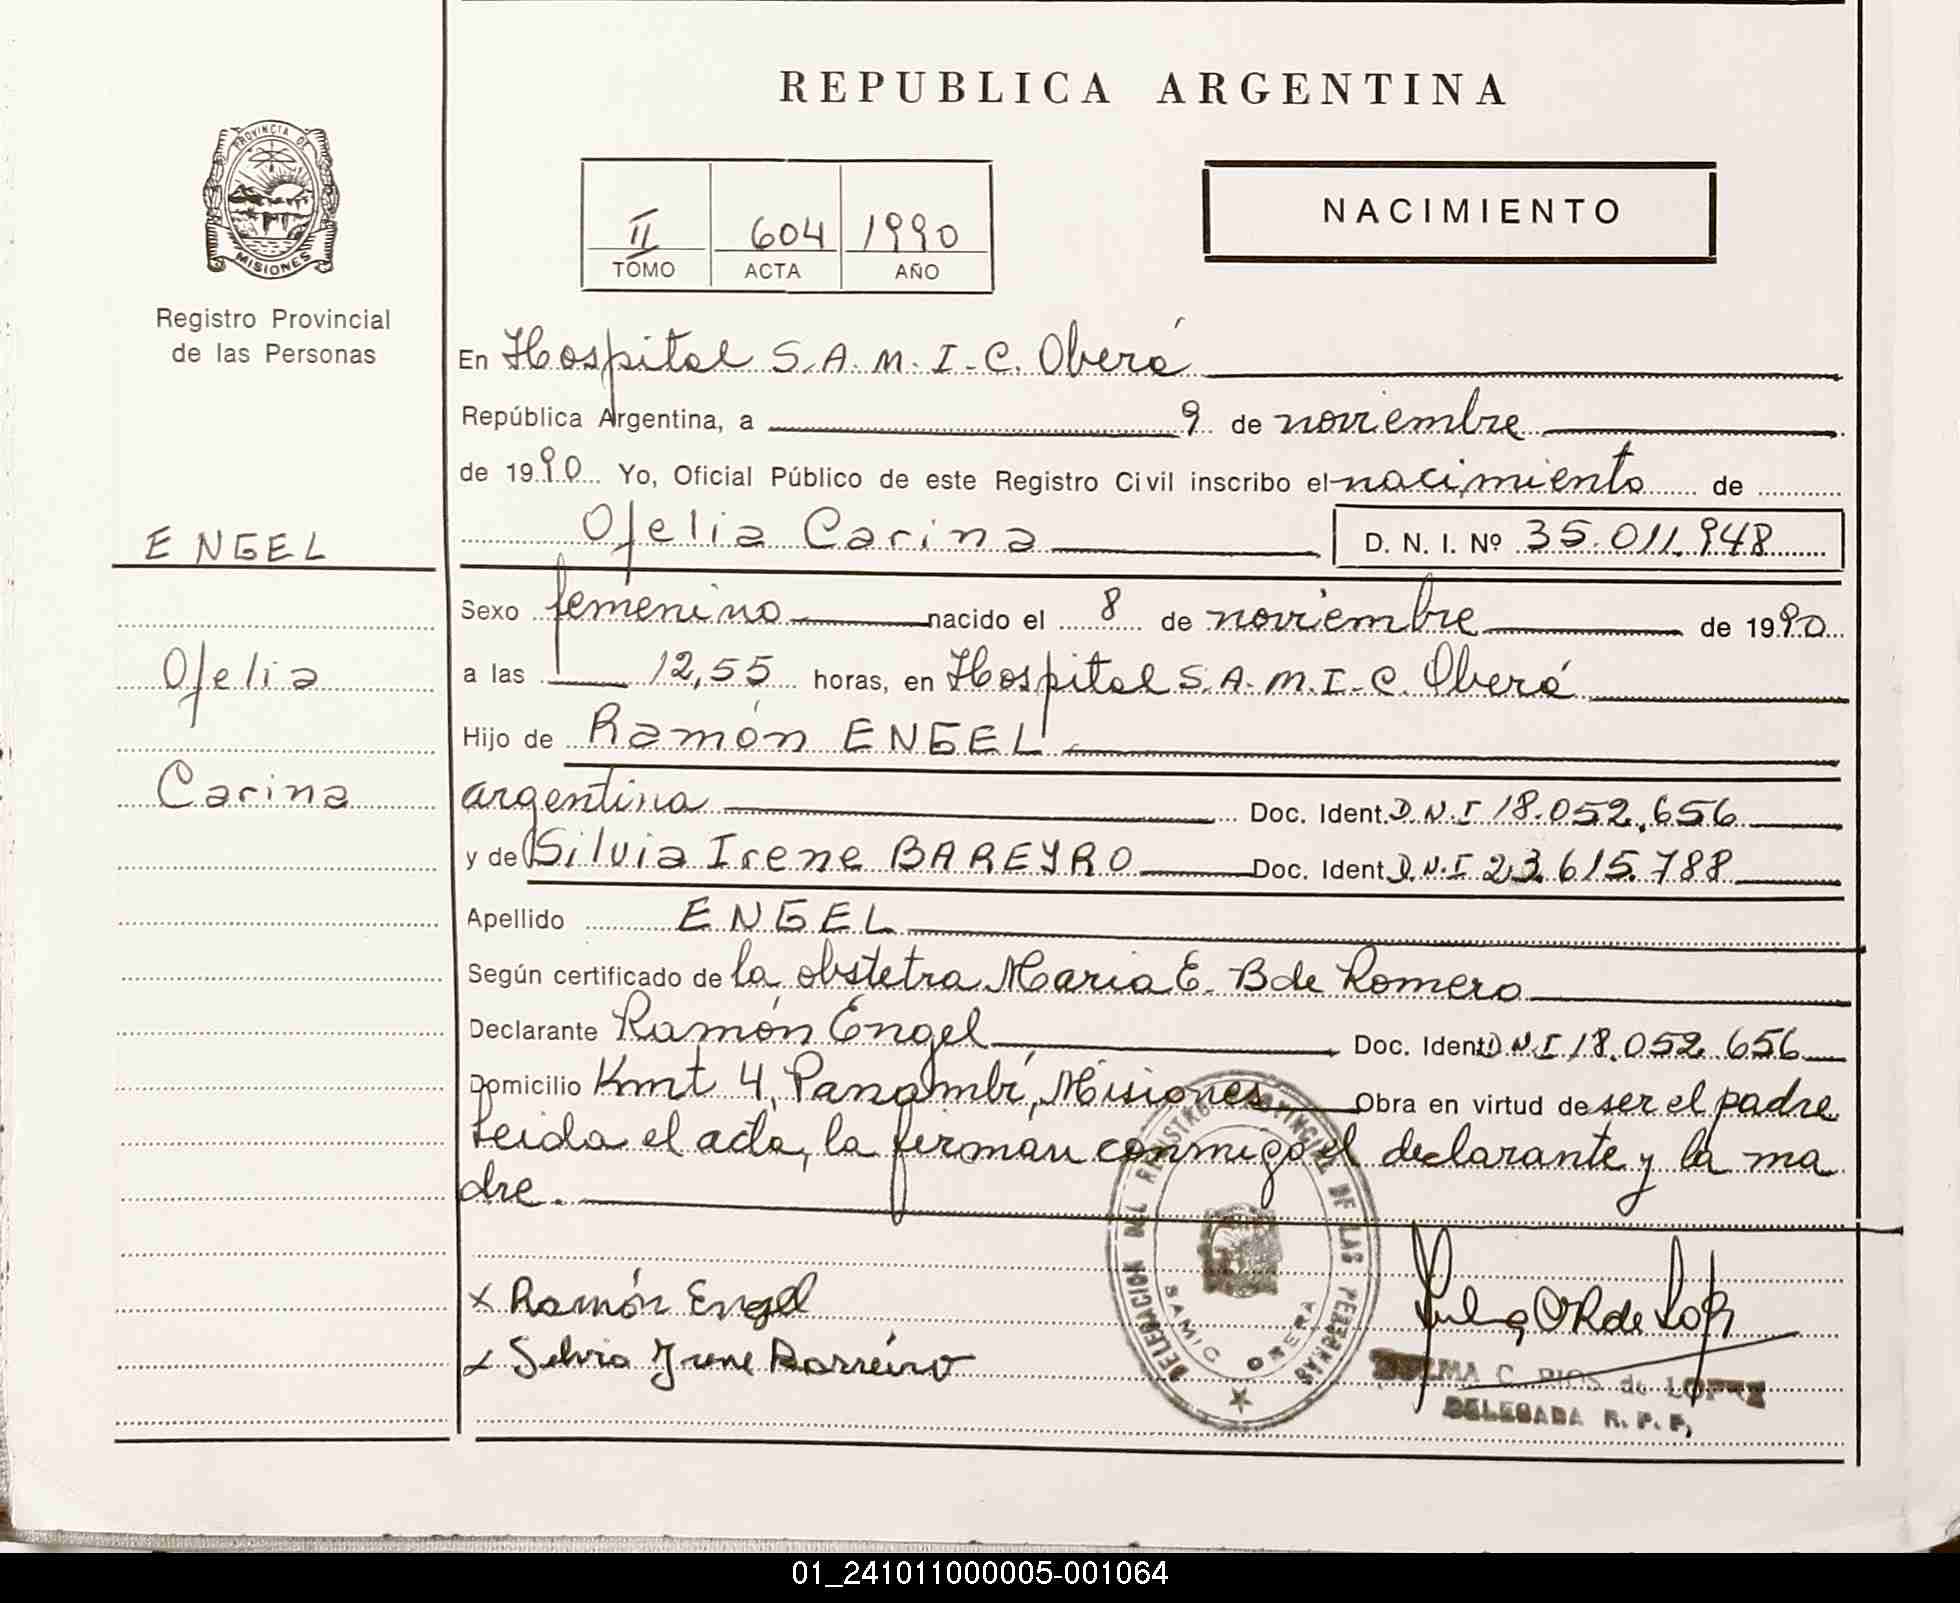 REPUBLICA ARGENTINA
PROVINCIA DE
MISIONES
Registro Provincial
de las Personas
II 604 1990
TOMO ACTA AÑO
NACIMIENTO
En Hospital S.A.M.I.C. Oberá
República Argentina, a 9 de noviembre
de 1990 Yo, Oficial Público de este Registro Civil inscribo el nacimiento de
Ofelia Carina D. N. I. Nº 35.011.948
ENGEL
Ofelia
Carina
Sexo femenino nacido el 8 de noviembre de 1990
a las 12,55 horas, en Hospital S.A.M.I.C. Oberá
Hijo de Ramón ENGEL
argentina Doc. Ident. D.N.I 18.052.656
y de Silvia Irene BAREYRO Doc. Ident. D.N.I 23.615.788
Apellido ENGEL
Según certificado de la obstetra Maria E. B de Romero
Declarante Ramón Engel Doc. Ident. D.N.I 18.052.656
Domicilio Kmt 4, Panambí, Misiones Obra en virtud de ser el padre
Leida el acta, la firman conmigo el declarante y la ma
dre.
x Ramón Engel
x Silvia Irene Barreiro
DELEGACION DEL REGISTRO PROVINCIAL DE LAS PERSONAS
SAMIC OBERA
C. RIOS de LOPEZ
DELEGADA R. P. P.
01_241011000005-001064